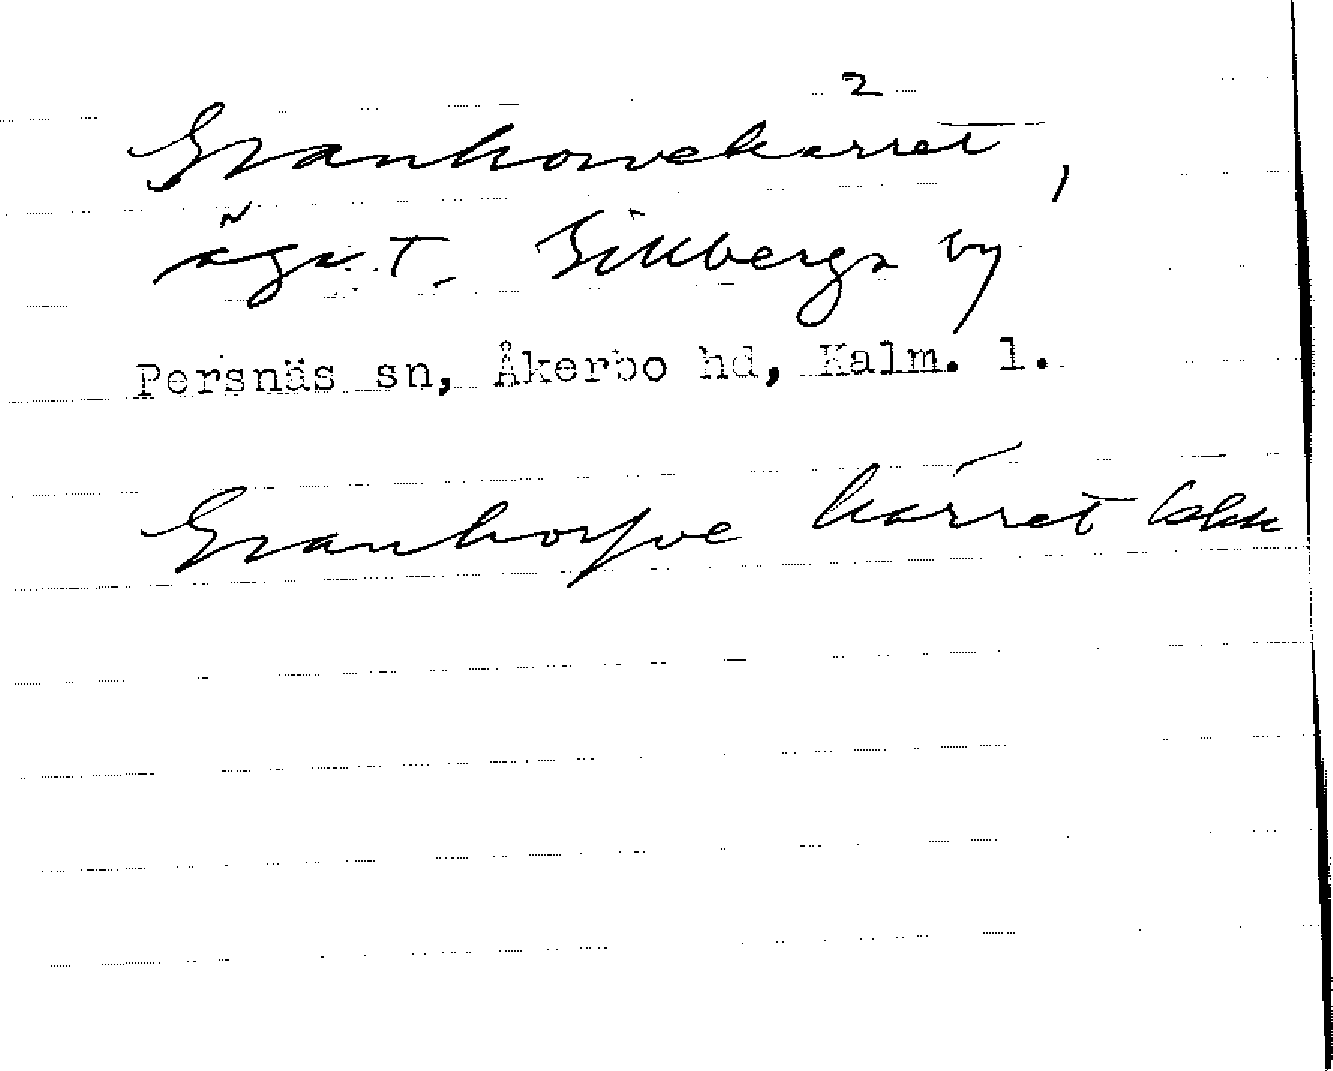 2
Granhorvekärret,
äga t. Sikbergs by
Persnäs sn, Åkerbo hd, Kalm. l.
Granhorfve kärret